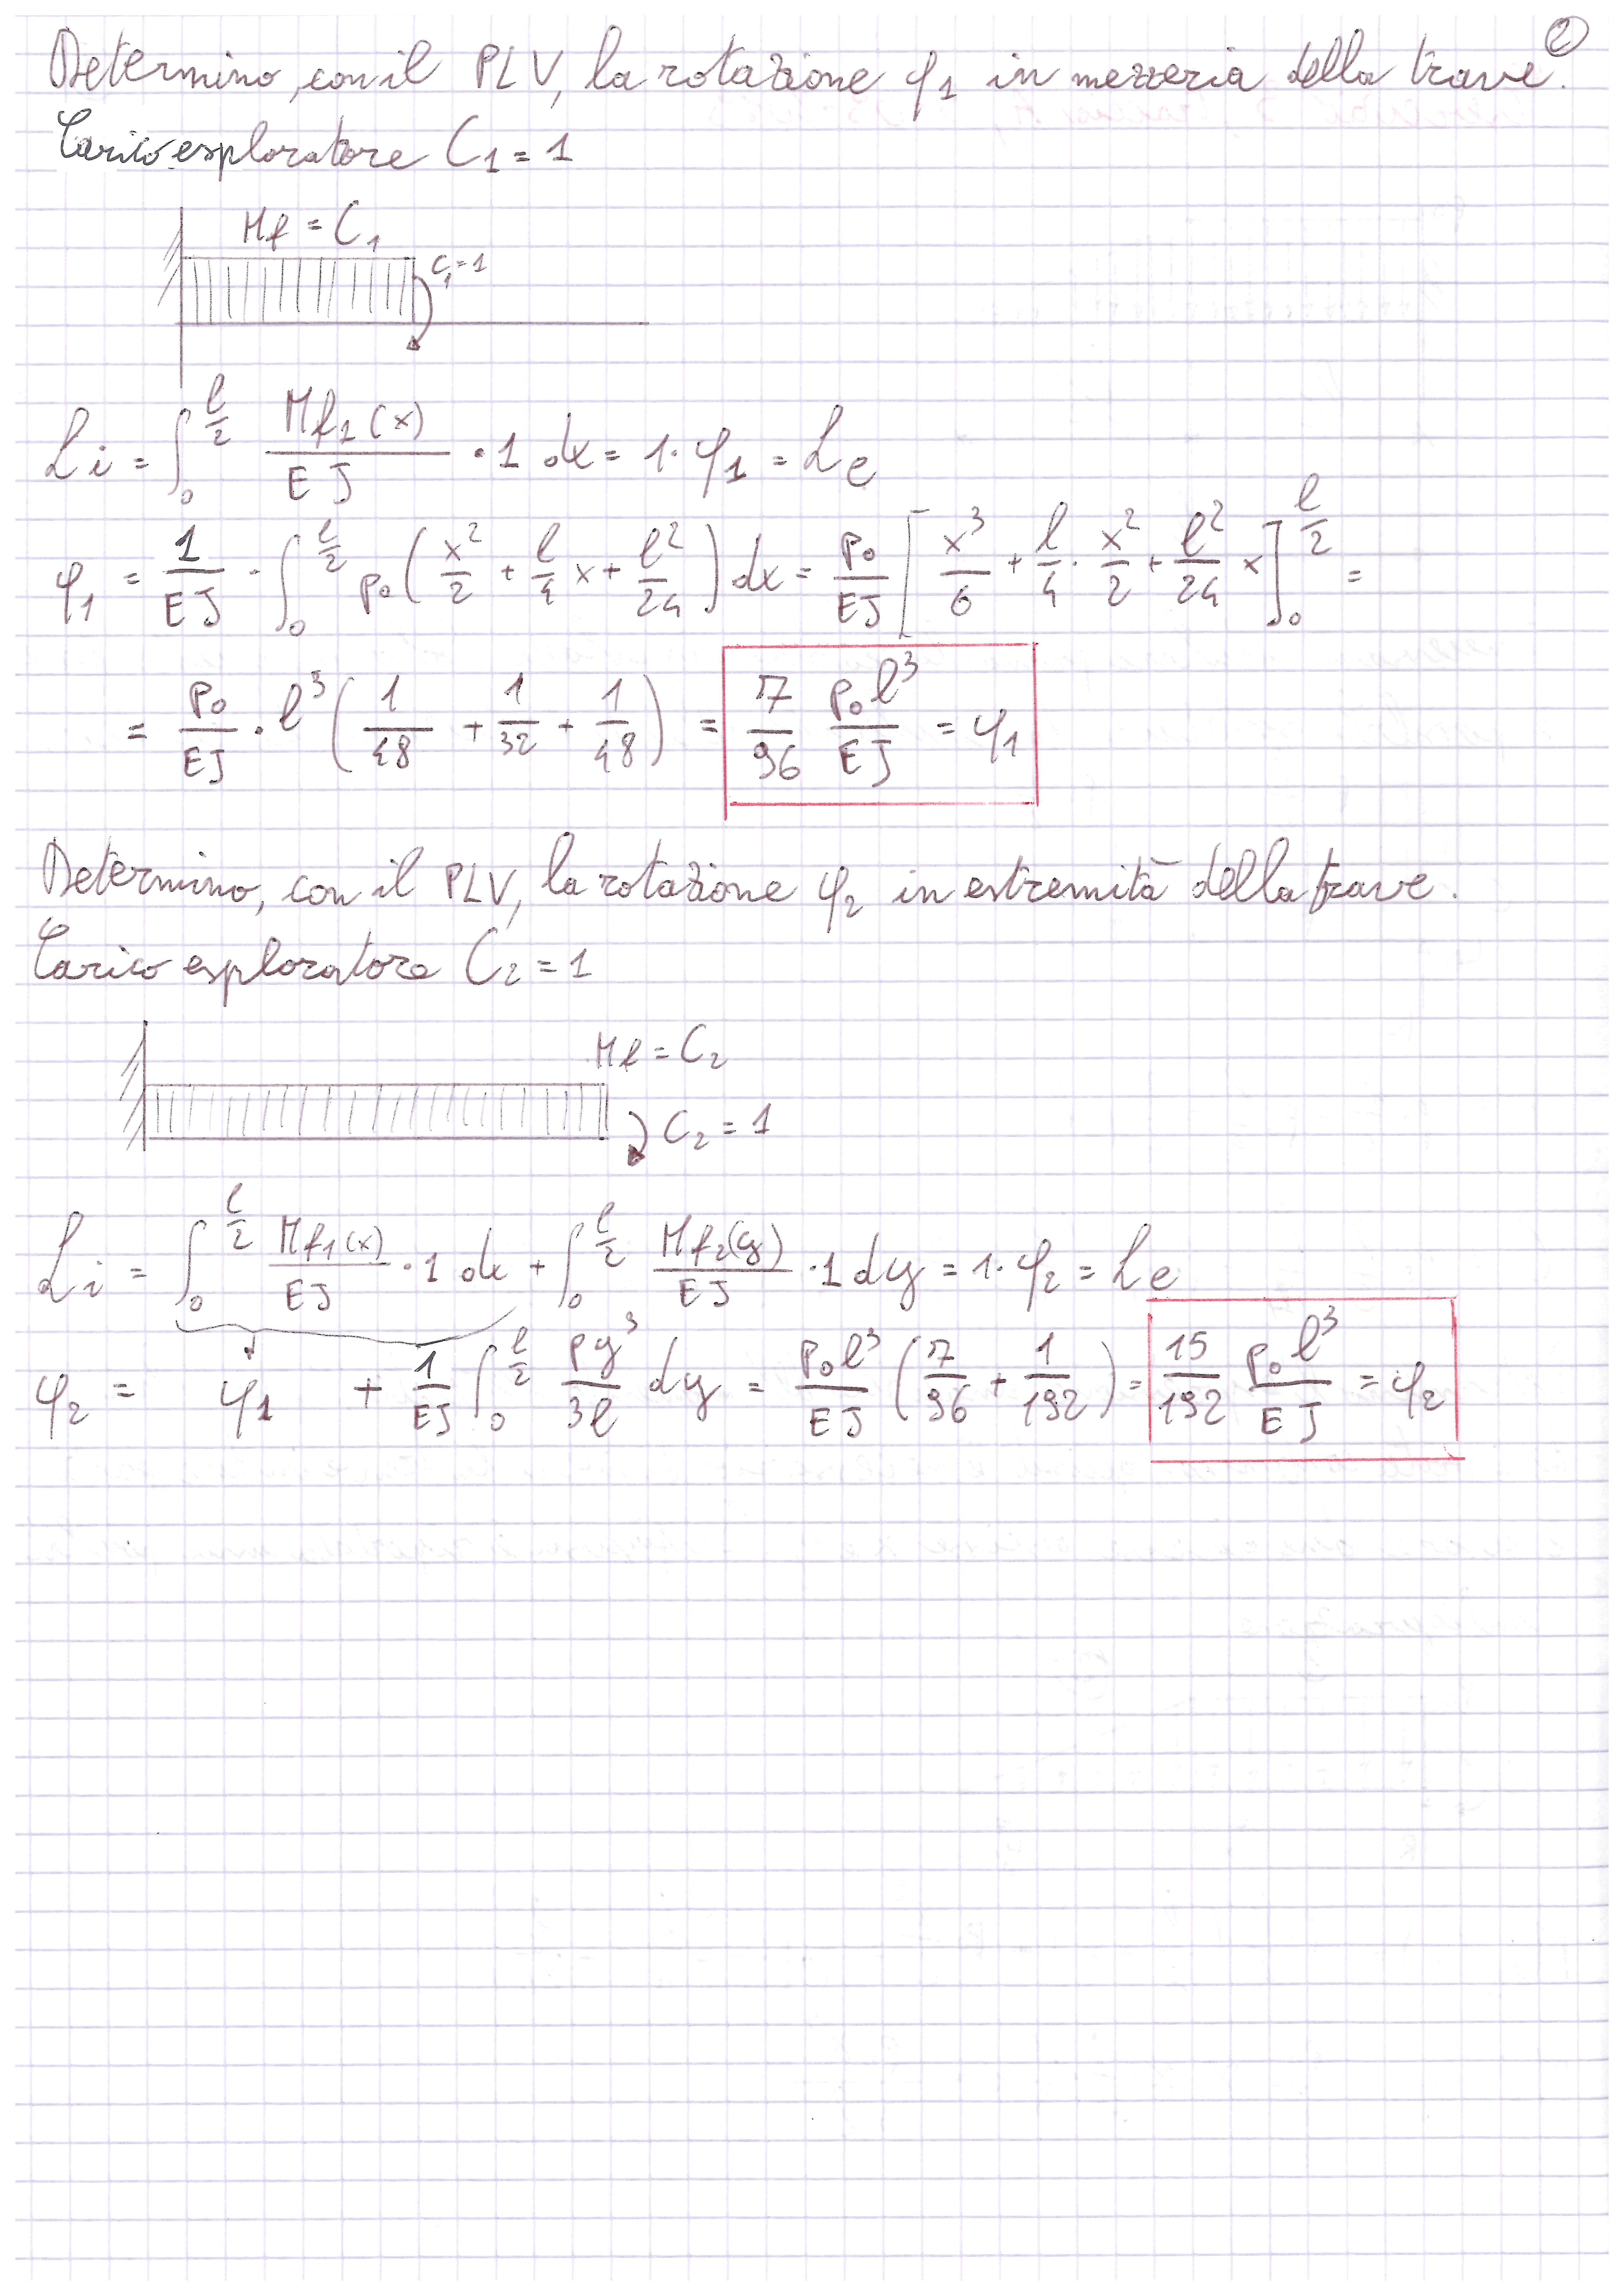 2
Determino, con il PLV, la rotazione φ₁ in mezzeria della trave.
Carico esploratore C₁ = 1
Mf = C₁
C₁ = 1
Li = ∫₀^(l/2) Mf₁(x)/EJ · 1 dx = 1 · φ₁ = Le
φ₁ = 1/EJ · ∫₀^(l/2) p₀ (x²/2 + l/4 x + l²/24) dx = p₀/EJ [x³/6 + l/4 · x²/2 + l²/24 x]₀^(l/2) =
= p₀/EJ · l³ (1/48 + 1/32 + 1/48) = 7/96 p₀l³/EJ = φ₁
Determino, con il PLV, la rotazione φ₂ in estremità della trave.
Carico esploratore C₂ = 1
Mf = C₂
C₂ = 1
Li = ∫₀^(l/2) Mf₁(x)/EJ · 1 dx + ∫₀^(l/2) Mf₂(y)/EJ · 1 dy = 1 · φ₂ = Le
φ₂ = φ₁ + 1/EJ ∫₀^(l/2) py³/3l dy = p₀l³/EJ (7/96 + 1/192) = 15/192 p₀l³/EJ = φ₂